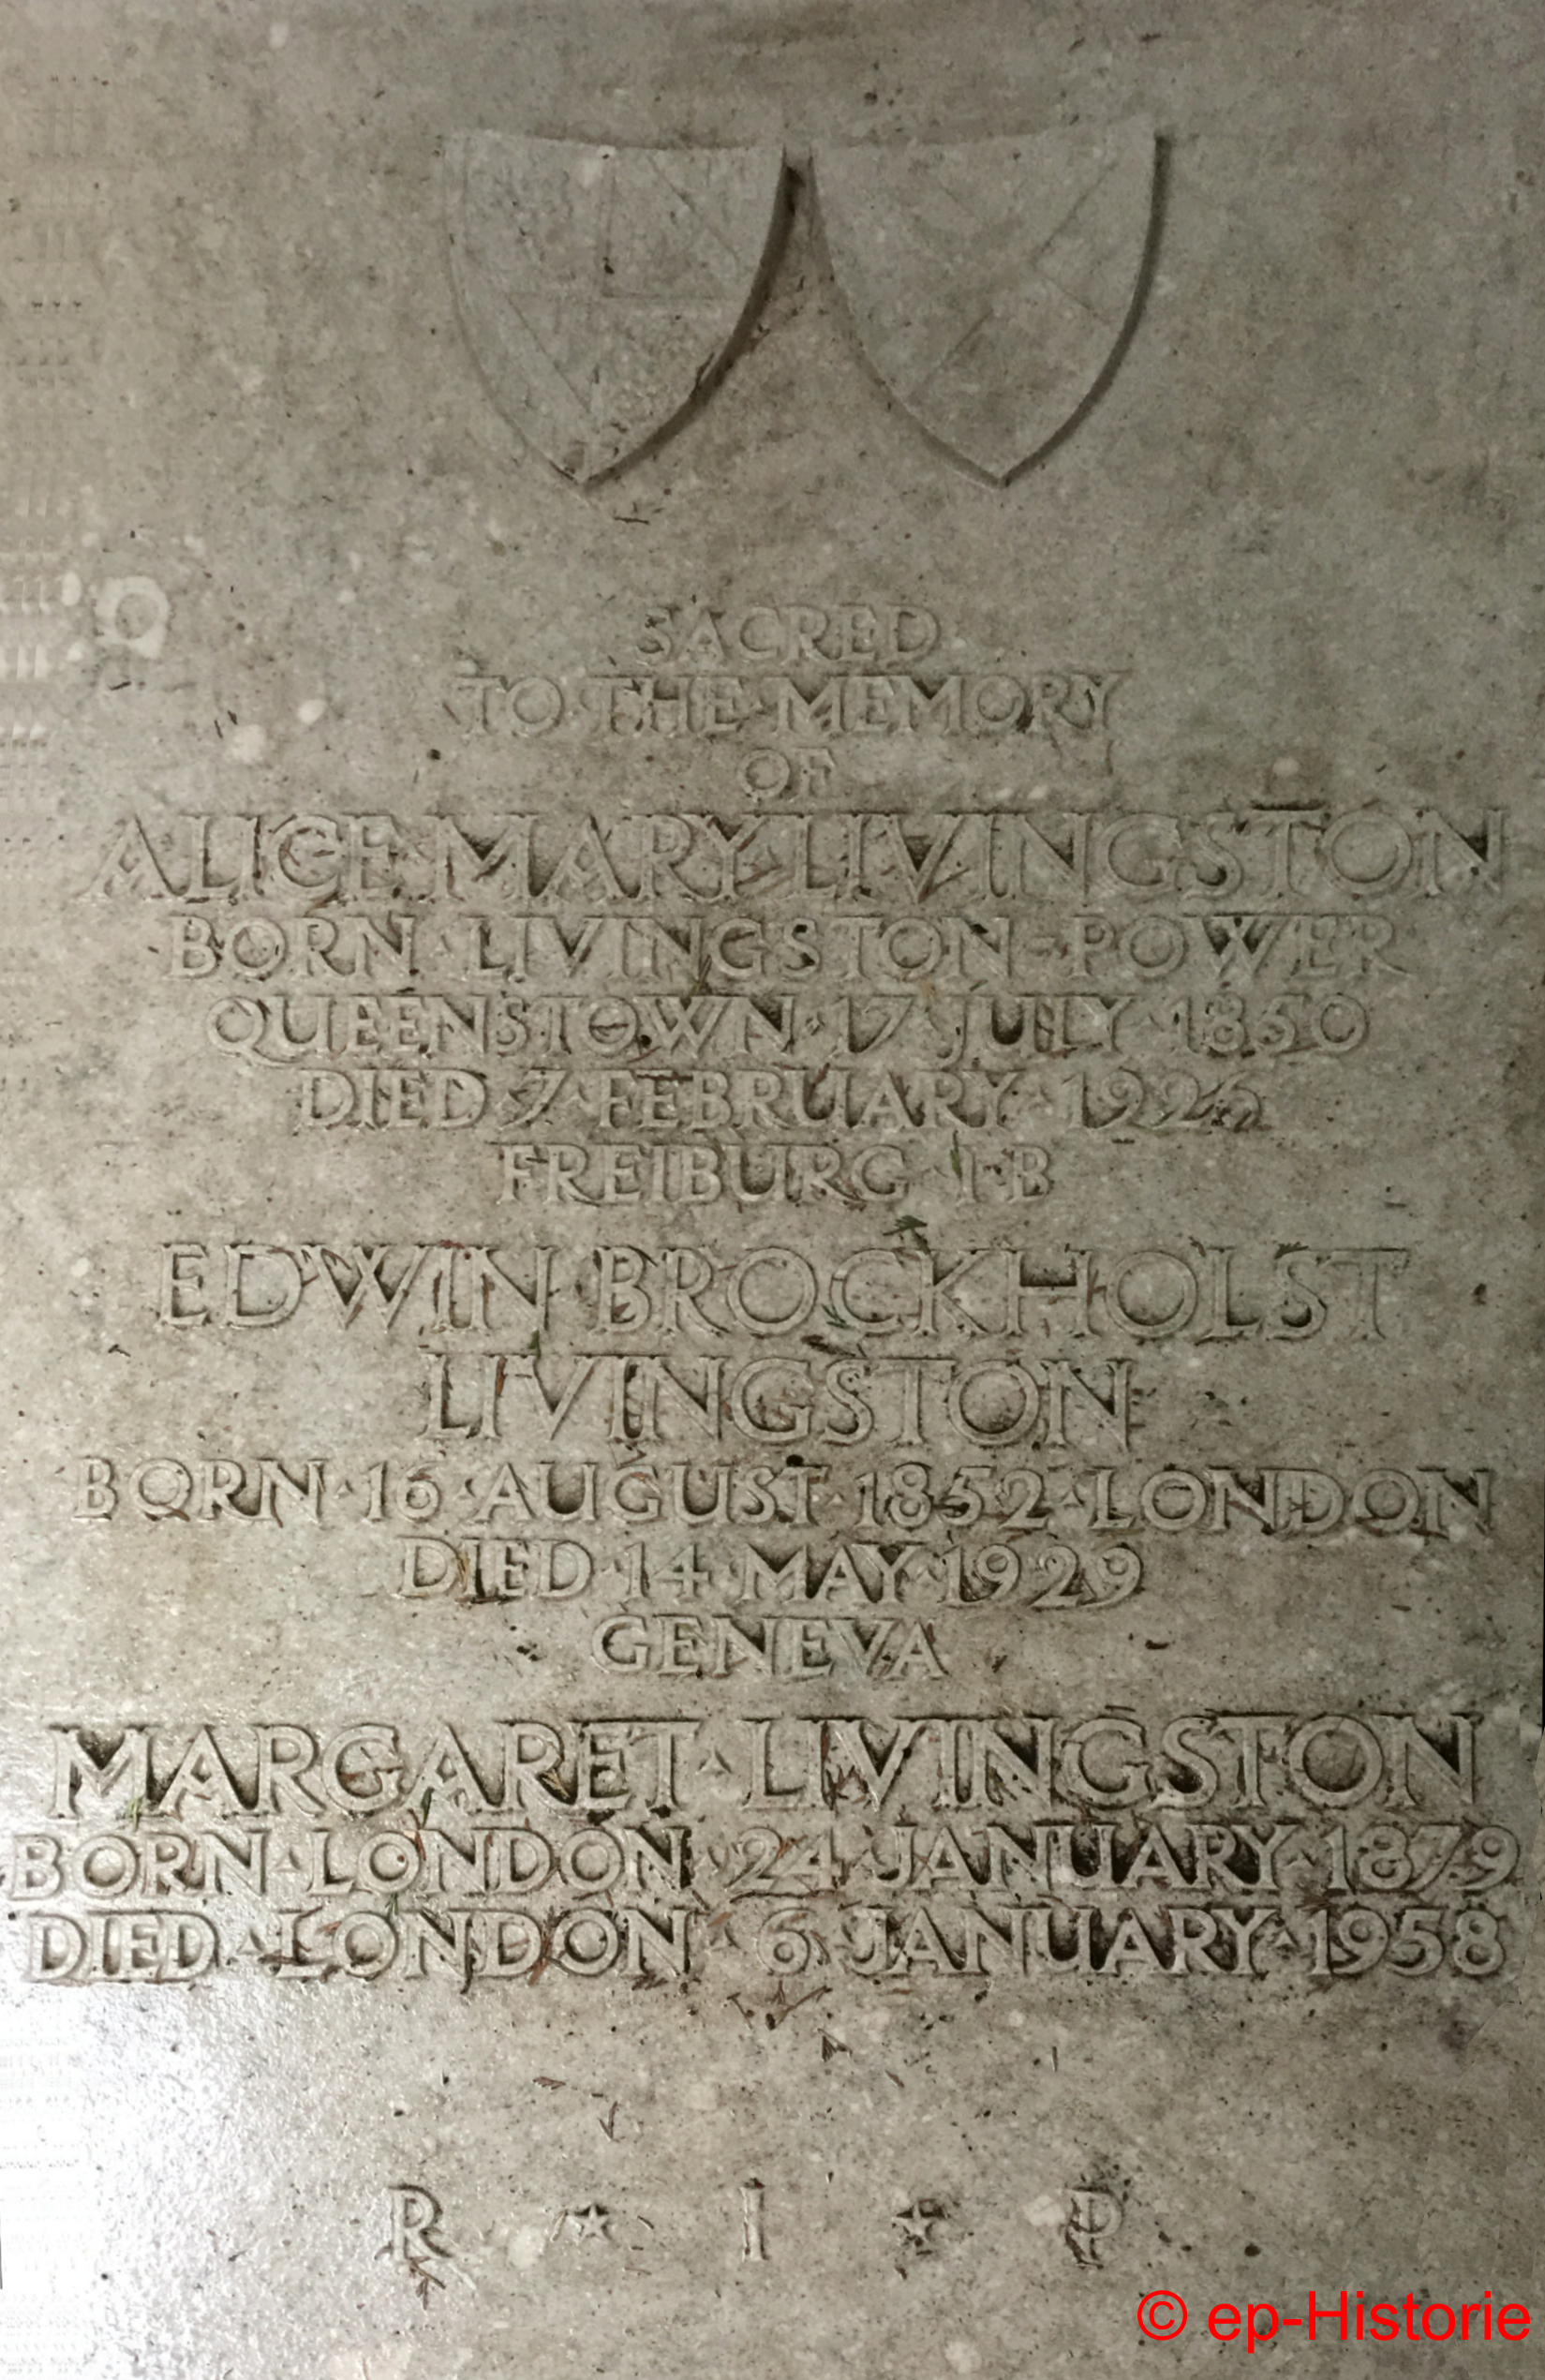 SACRED
TO·THE·MEMORY
OF
ALICE·MARY·LIVINGSTON
BORN·LIVINGSTON-POWER
QUEENSTOWN·17 JULY·1850
DIED·7·FEBRUARY·1926
FREIBURG I·B
EDWIN BROCKHOLST
LIVINGSTON
BORN·16·AUGUST·1852·LONDON
DIED·14·MAY·1929
GENEVA
MARGARET·LIVINGSTON
BORN·LONDON·24·JANUARY·1879
DIED·LONDON·6·JANUARY·1958
R ★ I ★ P
© ep-Historie